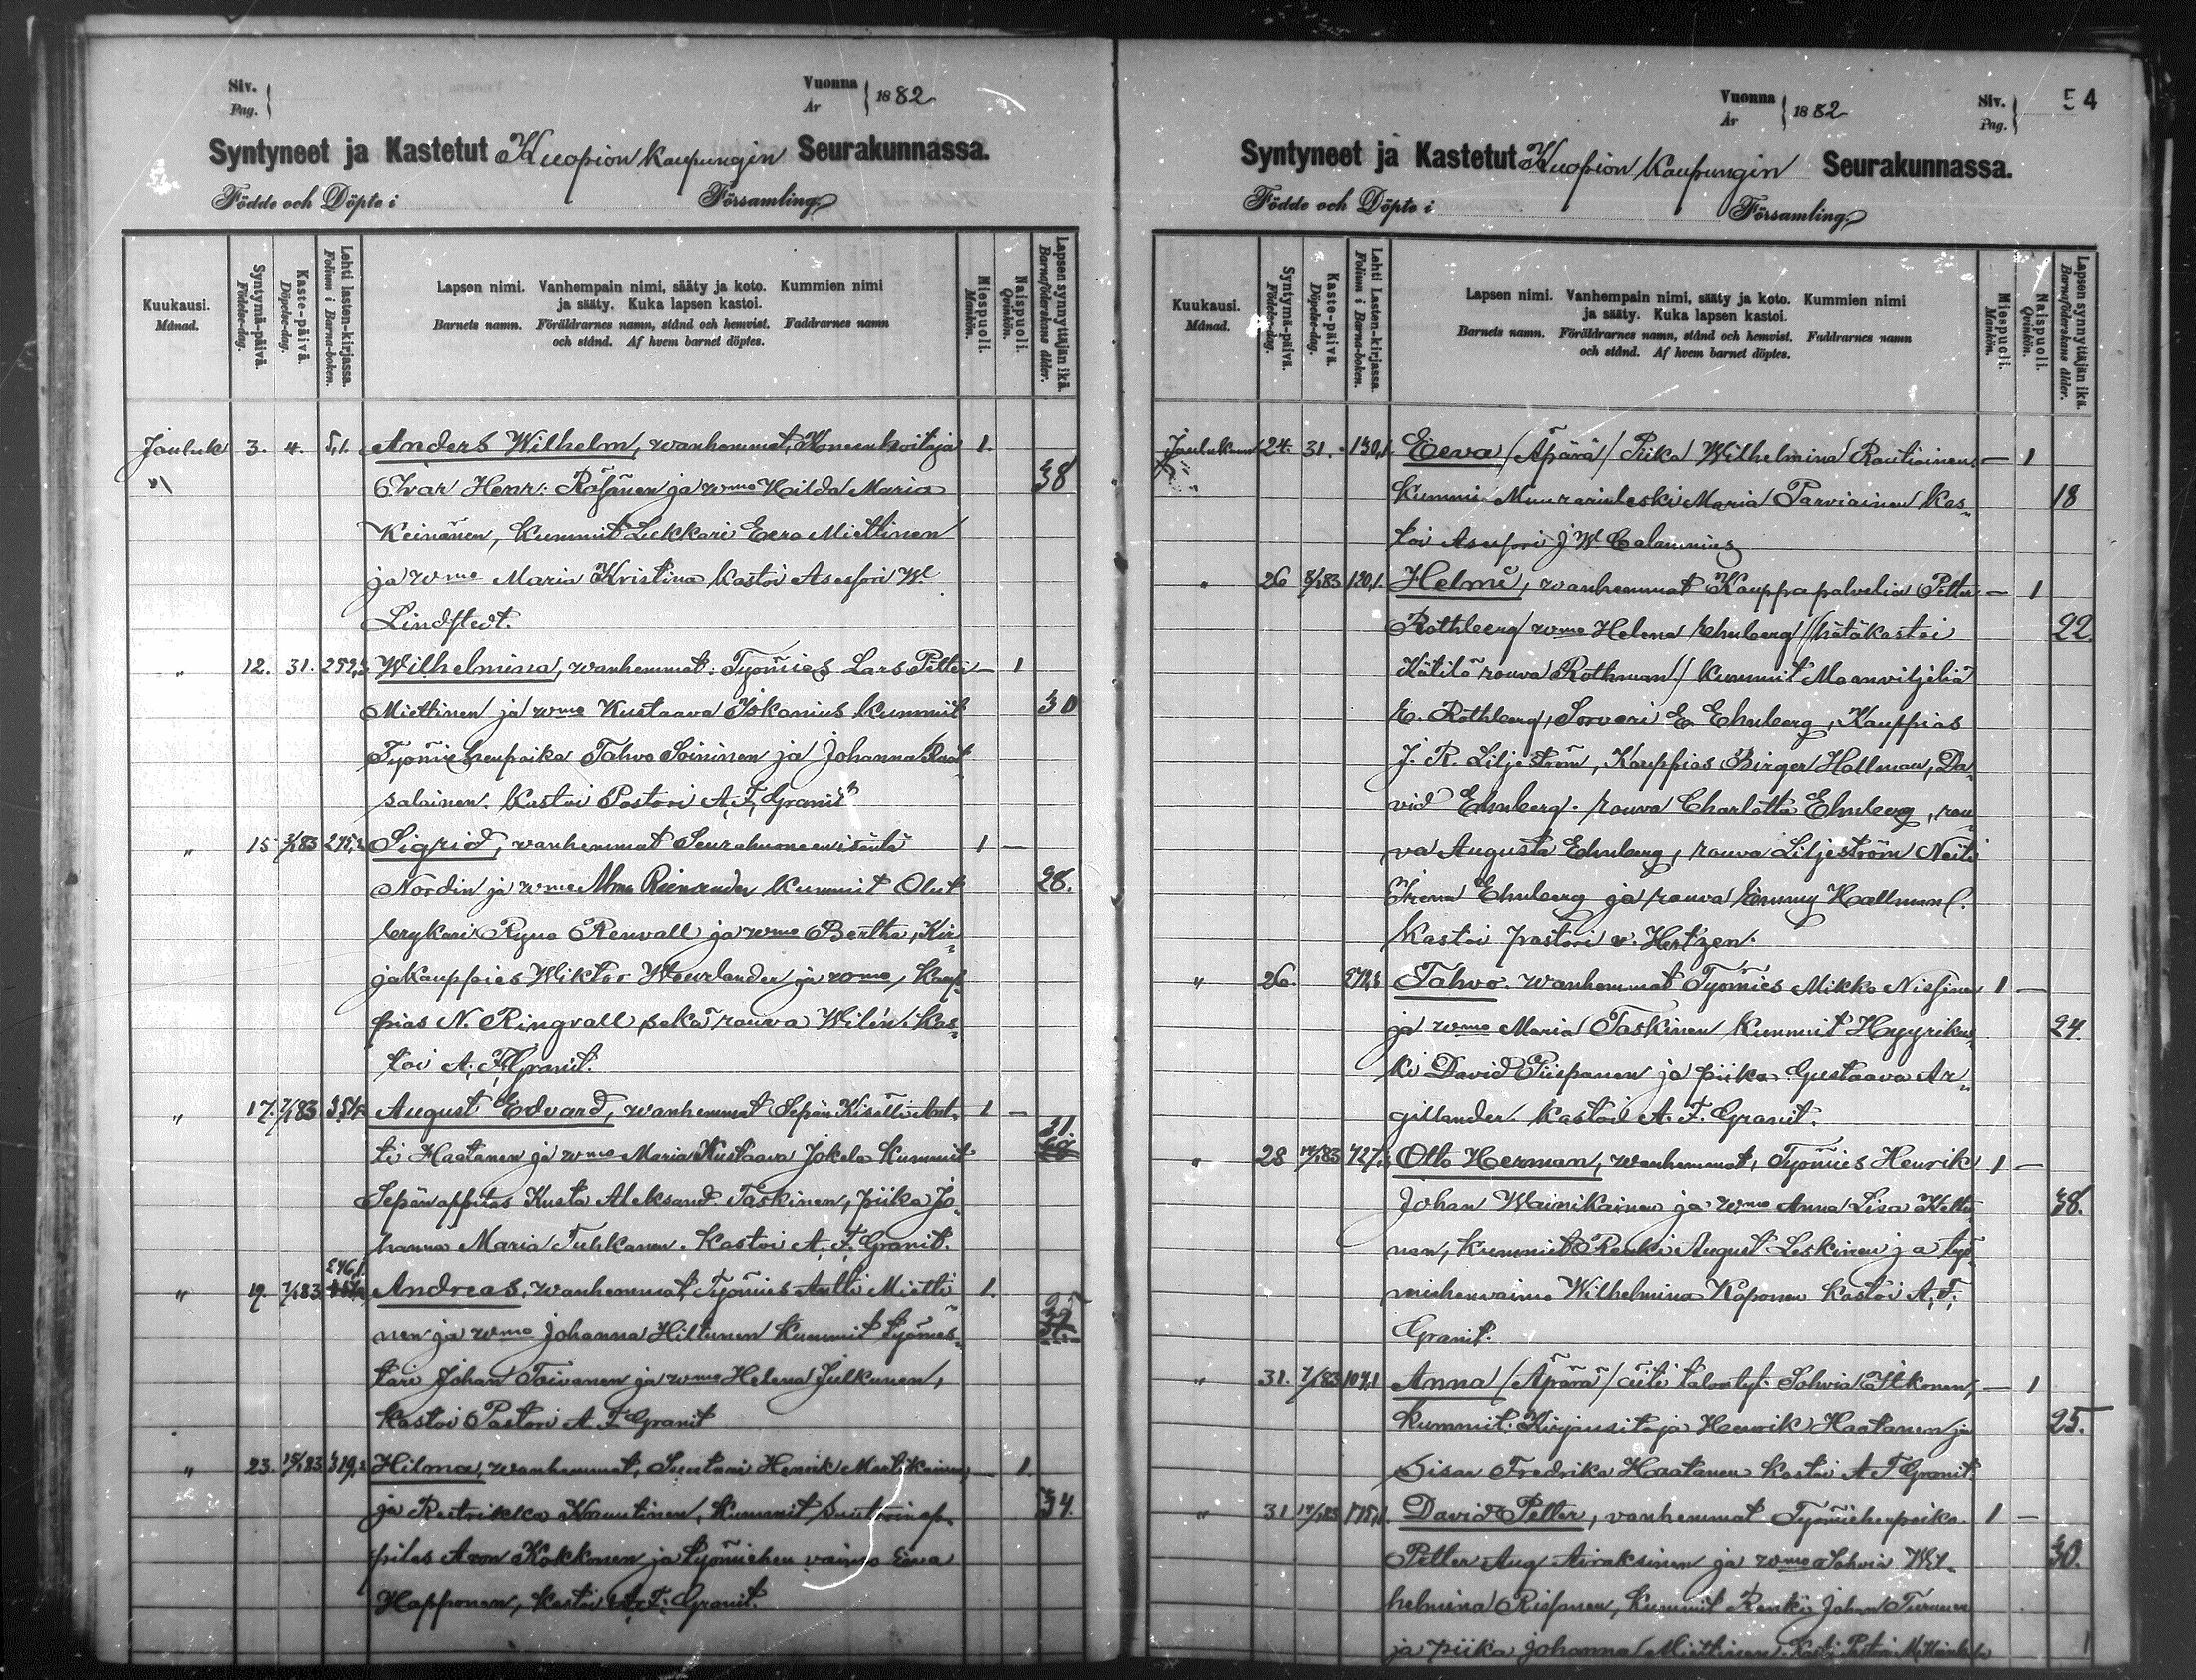 Siv.
Pag.
Vuonna
År
1882
Syntyneet ja Kastetut Kuopion Kaupungin Seurakunnassa.
Födde och Döpte i Församling.
Kuukausi.
Månad.
Syntymä-päivä.
Födelse-dag.
Kaste-päivä.
Döpelse-dag.
Lehti lasten-kirjassa.
Folium i Barna-boken.
Lapsen nimi. Vanhempain nimi, sääty ja koto. Kummien nimi
ja sääty. Kuka lapsen kastoi.
Barnets namn. Föräldrarnes namn, stånd och hemvist. Faddrarnes namn
och stånd. Af hvem barnet döptes.
Miespuoli.
Mankön.
Naispuoli.
Qvinkön.
Lapsen synnyttäjän ikä.
Barnaföderskans ålder.
Jouluk 3. 4. 51. Anders Wilhelm, wanhemmat, Koneenhoitaja 1.
Ivar Henr: Räsänen ja wmo Hilda Maria 38
Keinänen, Kummit Lukkari Eero Miettinen
ja wmo Maria Kristina kastoi Asessori W
Lindstedt.
" 12. 31. Wilhelmina, wanhemmat: Työmies Lars Petter — 1
Miettinen ja wmo Kustaava Iskanius kummit 30
Työmiehenpoika Tahvo Soininen ja Johanna
salainen. Kastoi Pastori A. F. Granit
" 15 3/1 83 Sigrid, vanhemmat Seurahuoneenisäntä 1 —
Nordin ja wmo Alma kummit Olut 28.
brykäri Renvall ja wmo Bertha, Kir-
jakauppias Wiktor ja wmo, Kaup-
pias N. Ringvall, sekä rouva Wilén. Kas-
toi A. F. Granit.
" 17. 7/1 83 August Edvard, wanhemmat Sepän Kisälli Ant- 1 —
ti Haatanen ja wmo Maria Kustaava Jokela Kummit 31
Sepänoppilas Kusta Aleksand. Taskinen, piika Jo-
hanna Maria Tuhkanen. Kastoi A. F. Granit.
" 19. 7/1 83 246,1 Andreas, wanhemmat Työmies Antti Mietti 1.
nen ja wmo Johanna Hiltunen Kummit työmes-
tari Johan Toivanen ja wmo Helena Julkunen,
Kastoi Pastori A. F. Granit
" 23. 15/1 83 Hilma, wanhemmat, Suutari Henrik Martikainen, — 1.
ja Reetrikka Knuutinen, Kummit suutarinop- 34.
pilas Aron Kokkonen ja työmiehen vaimo Eeva
Happonen, kastoi A. F. Granit.
Vuonna
År
1882
Siv.
Pag.
54
Syntyneet ja Kastetut Kuopion Kaupungin Seurakunnassa.
Födde och Döpte i Församling.
Kuukausi.
Månad.
Syntymä-päivä.
Födelse-dag.
Kaste-päivä.
Döpelse-dag.
Lehti Lasten-kirjassa.
Folium i Barna-boken.
Lapsen nimi. Vanhempain nimi, sääty ja koto. Kummien nimi
ja sääty. Kuka lapsen kastoi.
Barnets namn. Föräldrarnes namn, stånd och hemvist. Faddrarnes namn
och stånd. Af hvem barnet döptes.
Miespuoli.
Mankön.
Naispuoli.
Qvinkön.
Lapsen synnyttäjän ikä.
Barnaföderskans ålder.
Joulukuun 24. 31. 130,1. Eeva (Äpärä) Piika Wilhelmina Rautiainen. — 1
Kummi Muurarinleski Maria Parviainen Kas- 18
toi Asessori J W Calamnius
" 26 120,1. Helmi, wanhemmat Kauppapalvelia Petter — 1
Rothberg wmo Helena Ehnberg (hätäkastoi 22.
Kätilörouva Rothman) Kummit Maanviljeliä
E. Rothberg, Sorvari E. Ehnberg, Kauppias
J. R. Liljeström, Kauppias Birger Hallman, Da-
vid Ehnberg. rouva Charlotta Ehnberg, rou-
va Augusta Ehnberg, rouva Liljeström Neiti
Irena Ehnberg ja rouva Emmy Hallman.
Kastoi pastori v. Hertzen.
" 26. Tahvo wanhemmat Työmies Mikko Nissinen 1 —
ja wmo Maria Taskinen Kummit Hyyrikus- 24.
ki David Piispanen ja piika Gustaava Ar-
gillander. Kastoi A. F. Granit.
" 28 14/1 83 Otto Herman, wanhemmat, Työmies Henrik 1 —
Johan Wainikainen ja wmo Anna Lisa Keltu 38.
nen, Kummit Renki August Leskinen ja työ-
miehenvaimo Wilhelmina Kaponen Kastoi A. F.
Granit.
" 31. 7/1 83 104,1 Anna (Äpärä) äiti talontyt. Sohvia Itkonen, — 1
Kummit. Kirjansitoja Henrik Haatanen ja 25.
Sisar Fredrika Haatanen Kastoi A F Granit.
" 31 14/1 83 175,1. David Petter, vanhemmat Työmiehenpoika 1 —
Petter Aug. Airaksinen ja wmo Sohvia Wil- 30.
helmina Rissanen, Kummit Renki Johan Turunen
ja piika Johanna Miettinen. Kasti Pastori